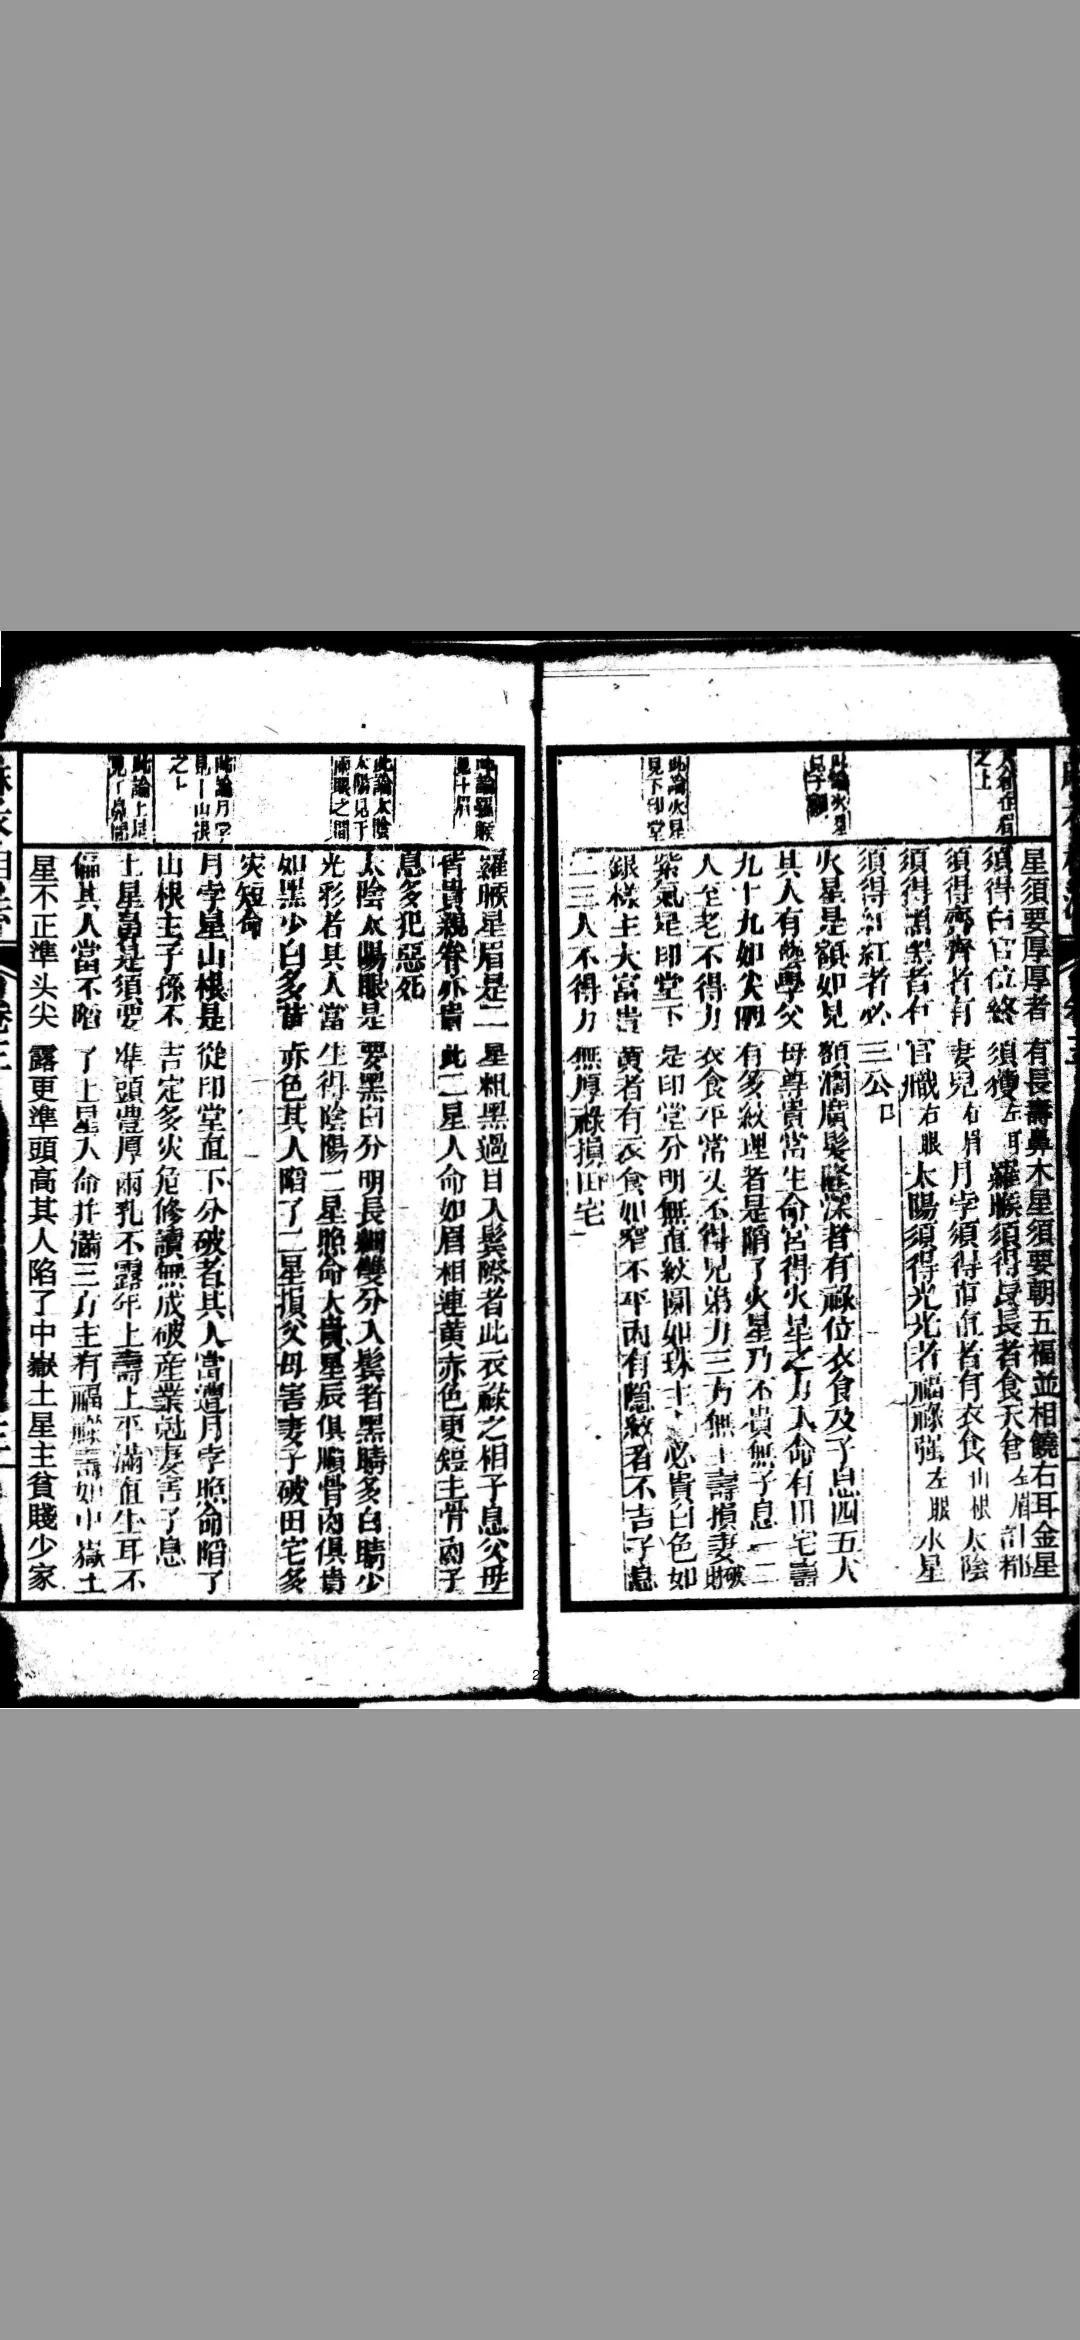 之上
星須要厚厚者有長壽鼻木星須要朝五福並相饒右耳金星
須得白官位終須獲左耳羅睺須得長長者食天倉左眉計都
須得齊齊者有妻兒右眉月孛須得直直者有衣食山根太陰
須得黑黑者有官職右眼太陽須得光光者福祿强左眼水星
須得紅紅者必三公口
此論火星
火星是額如見額濶廣髮隆深者有祿位衣食及子息四五人
其人有藝學父母尊貴當生命宮得火星之力人命有田宅壽
九十九如尖陋有多紋理者是陷了火星乃不貴無子息一二
人至老不得力衣食平常又不得兄弟力三方無主壽損妻破財
此論火星
見下印堂
紫氣是印堂下是印堂分明無直紋圓如珠主人必貴白色如
銀樣主大富貴黄者有衣食如窄不平内有隱紋者不吉子息
二三人不得力無厚祿損田宅
此論羅睺
羅睺星眉是二星粗黑過目入鬂際者此衣祿之相子息父母
皆貴親眷亦貴此二星人命如眉相連黄赤色更短主骨肉子
息多犯惡死
此論太陰
太陽見于
兩眼之間
太陰太陽眼是要黑白分明長細雙分入鬂者黑睛多白睛少
光彩者其人當生得陰陽二星照命大貴星辰俱順骨肉俱貴
如黑少白多黄赤色其人陷了二星損父母害妻子破田宅多
灾短命
此論月孛
見于山根
之上
月孛星山根是從印堂直下分破者其人當遭月孛照命陷了
山根主子孫不吉定多灾危修讀無成破産業尅妻害子息
此論土星
土星鼻是須要準頭豊厚兩孔不露年上壽上平滿直生耳不
偏其人當不陷了土星入命并滿三方主有福祿壽如中嶽土
星不正準头尖露更準頭高其人陷了中嶽土星主貧賤少家
2